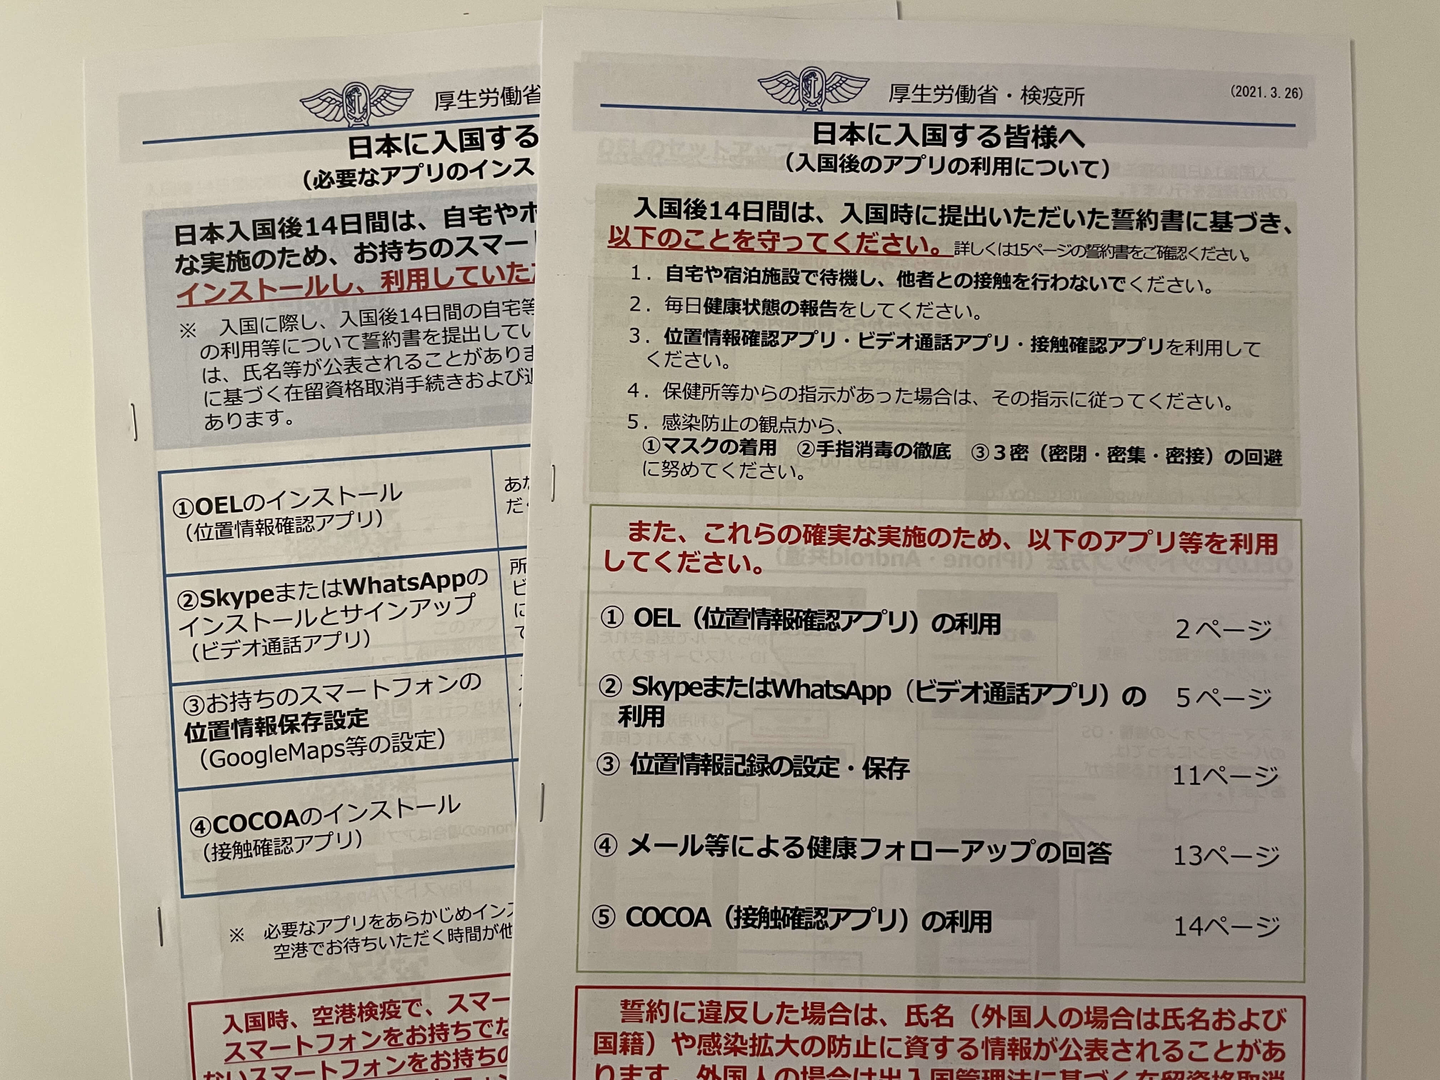 厚生労働省
日本に入国する
（必要なアプリのインス
日本入国後14日間は、自宅や
な実施のため、お持ちのスマー
インストールし、利用していた
※　入国に際し、入国後14日間の自宅等
の利用等について誓約書を提出してい
は、氏名等が公表されることがありま
に基づく在留資格取消手続きおよび
あります。
①OELのインストール
（位置情報確認アプリ）
②SkypeまたはWhatsAppの
インストールとサインアップ
（ビデオ通話アプリ）
③お持ちのスマートフォンの
位置情報保存設定
（GoogleMaps等の設定）
④COCOAのインストール
（接触確認アプリ）
※　必要なアプリをあらかじめインス
空港でお待ちいただく時間が他
入国時、空港検疫で、スマー
スマートフォンをお持ちでな
ないスマートフォンをお持ちの
厚生労働省・検疫所
(2021. 3. 26)
日本に入国する皆様へ
（入国後のアプリの利用について）
入国後14日間は、入国時に提出いただいた誓約書に基づき、
以下のことを守ってください。詳しくは15ページの誓約書をご確認ください。
1．自宅や宿泊施設で待機し、他者との接触を行わないでください。
2．毎日健康状態の報告をしてください。
3．位置情報確認アプリ・ビデオ通話アプリ・接触確認アプリを利用して
ください。
4．保健所等からの指示があった場合は、その指示に従ってください。
5．感染防止の観点から、
①マスクの着用　②手指消毒の徹底　③３密（密閉・密集・密接）の回避
に努めてください。
また、これらの確実な実施のため、以下のアプリ等を利用
してください。
① OEL（位置情報確認アプリ）の利用　2ページ
② SkypeまたはWhatsApp（ビデオ通話アプリ）の　5ページ
利用
③ 位置情報記録の設定・保存　11ページ
④ メール等による健康フォローアップの回答　13ページ
⑤ COCOA（接触確認アプリ）の利用　14ページ
誓約に違反した場合は、氏名（外国人の場合は氏名および
国籍）や感染拡大の防止に資する情報が公表されることがあ
ります。外国人の場合は出入国管理法に基づく在留資格取消